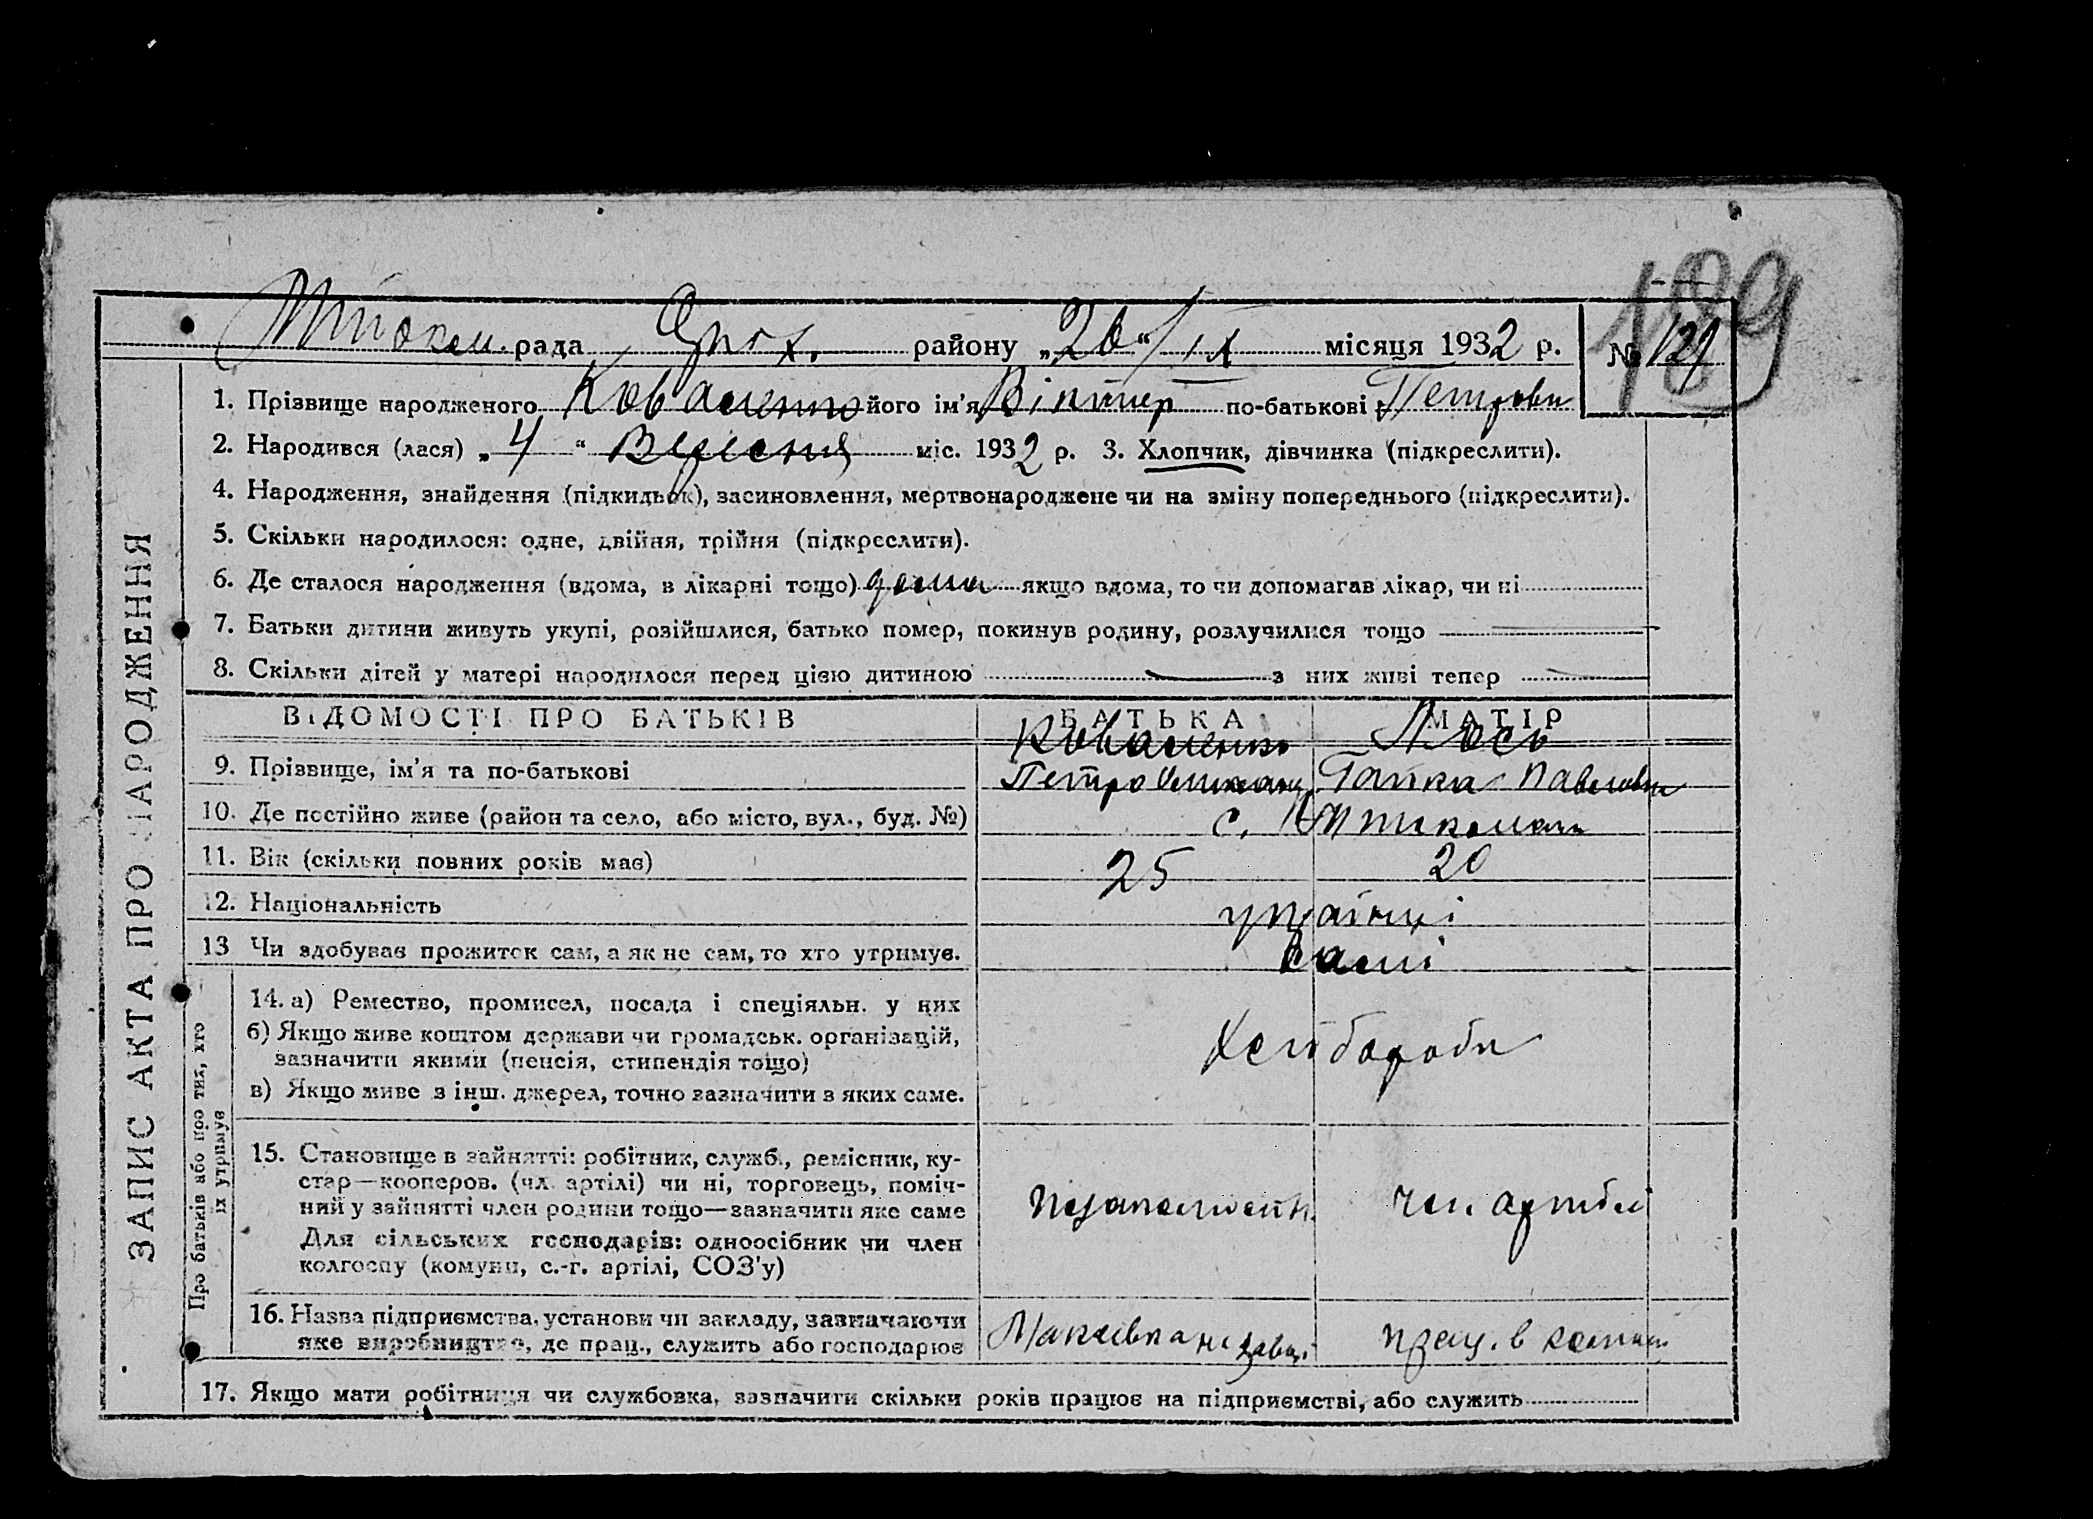 189
рада району „20“ IX місяця 1932 р. № 129
1. Прізвище народженого Коваленко його ім'я Віктер по-батькові Петрович
2. Народився (лася) „4“ Вересня міс. 1932 р. 3. Хлопчик, дівчинка (підкреслити).
4. Народження, знайдення (підкидьок), засиновлення, мертвонароджене чи на зміну попереднього (підкреслити).
5. Скільки народилося: одне, двійня, трійня (підкреслити).
6. Де сталося народження (вдома, в лікарні тощо) дома якщо вдома, то чи допомагав лікар, чи ні
7. Батьки дитини живуть укупі, розійшлися, батько помер, покинув родину, розлучилися тощо —
8. Скільки дітей у матері народилося перед цією дитиною — з них живі тепер —
ВІДОМОСТІ ПРО БАТЬКІВ БАТЬКА МАТІР
Коваленко
9. Прізвище, ім'я та по-батькові Петро Галка Павловна
10. Де постійно живе (район та село, або місто, вул., буд. №) с.
11. Вік (скільки повних років має) 25 20
12. Національність українці
13 Чи здобуває прожиток сам, а як не сам, то хто утримує. Сами
14. а) Ремество, промисел, посада і спеціяльн. у них
б) Якщо живе коштом держави чи громадськ. організацій,
зазначити якими (пенсія, стипендія тощо) Хліборобы
в) Якщо живе з інш. джерел, точно зазначити з яких саме.
15. Становище в зайнятті: робітник, служб., ремісник, ку-
стар—кооперов. (чл. артілі) чи ні, торговець, поміч-
ний у зайнятті член родини тощо—зазначити яке саме чл. артілі
Для сільських господарів: одноосібник чи член
колгоспу (комуни, с.-г. артілі, СОЗ'у)
16. Назва підприємства, установи чи закладу, зазначаючи
яке виробництво, де прац., служить або господарює Макеївка на заводі прац. в
17. Якщо мати робітниця чи службовка, зазначити скільки років працює на підприємстві, або служить
ЗАПИС АКТА ПРО НАРОДЖЕННЯ
Про батьків або про тих, хто
їх утримує